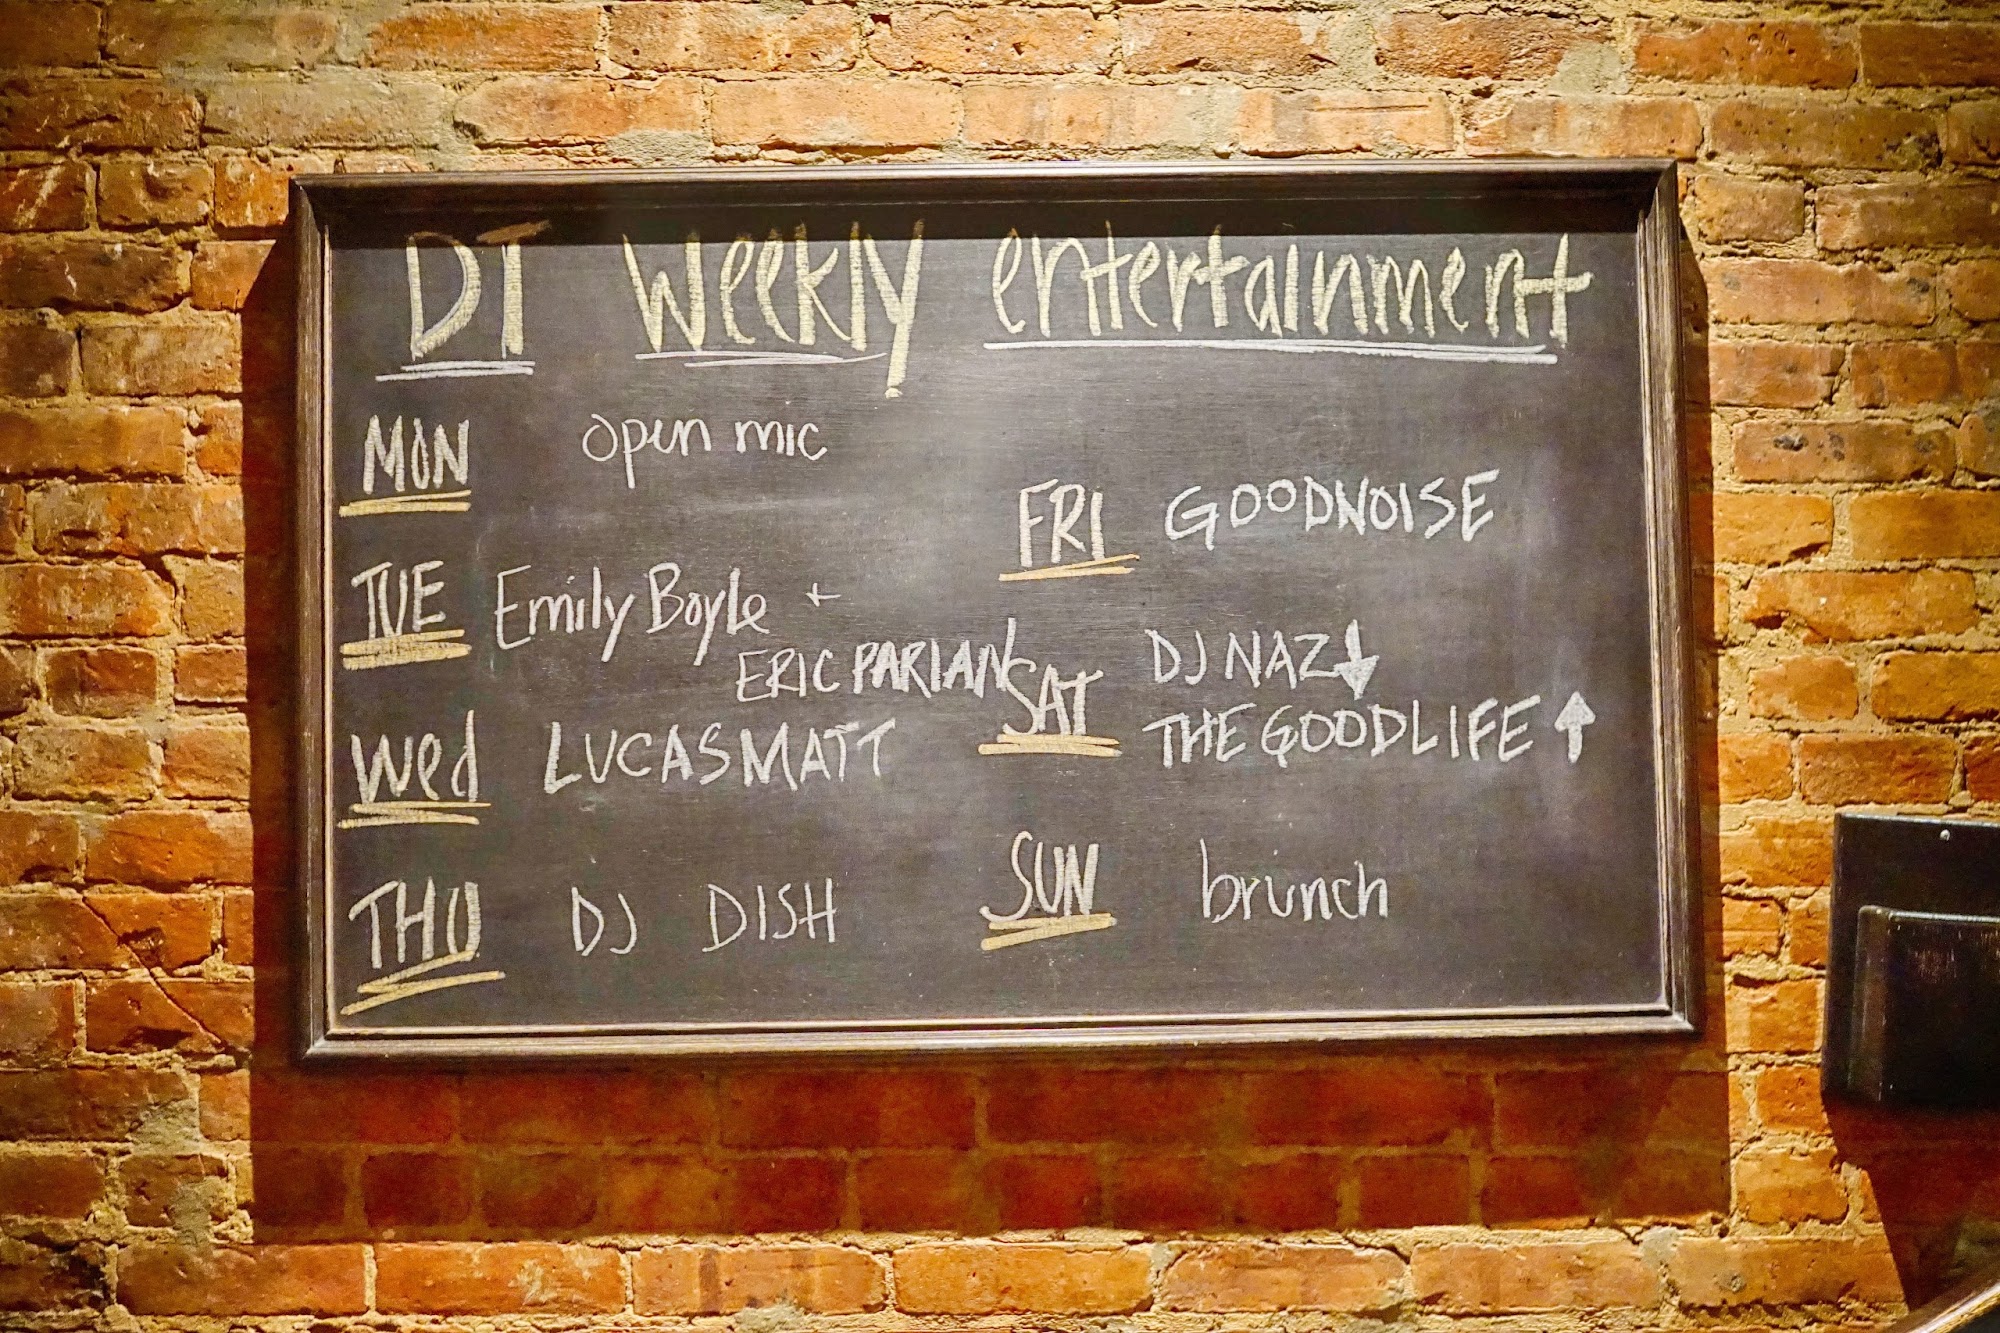 DT Weekly entertainment
MON open mic
TUE Emily Boyle +
ERIC PARIAN
Wed LUCAS MATT
THU DJ DISH
FRI GOODNOISE
SAT DJ NAZ ↓
THE GOODLIFE ↑
SUN brunch